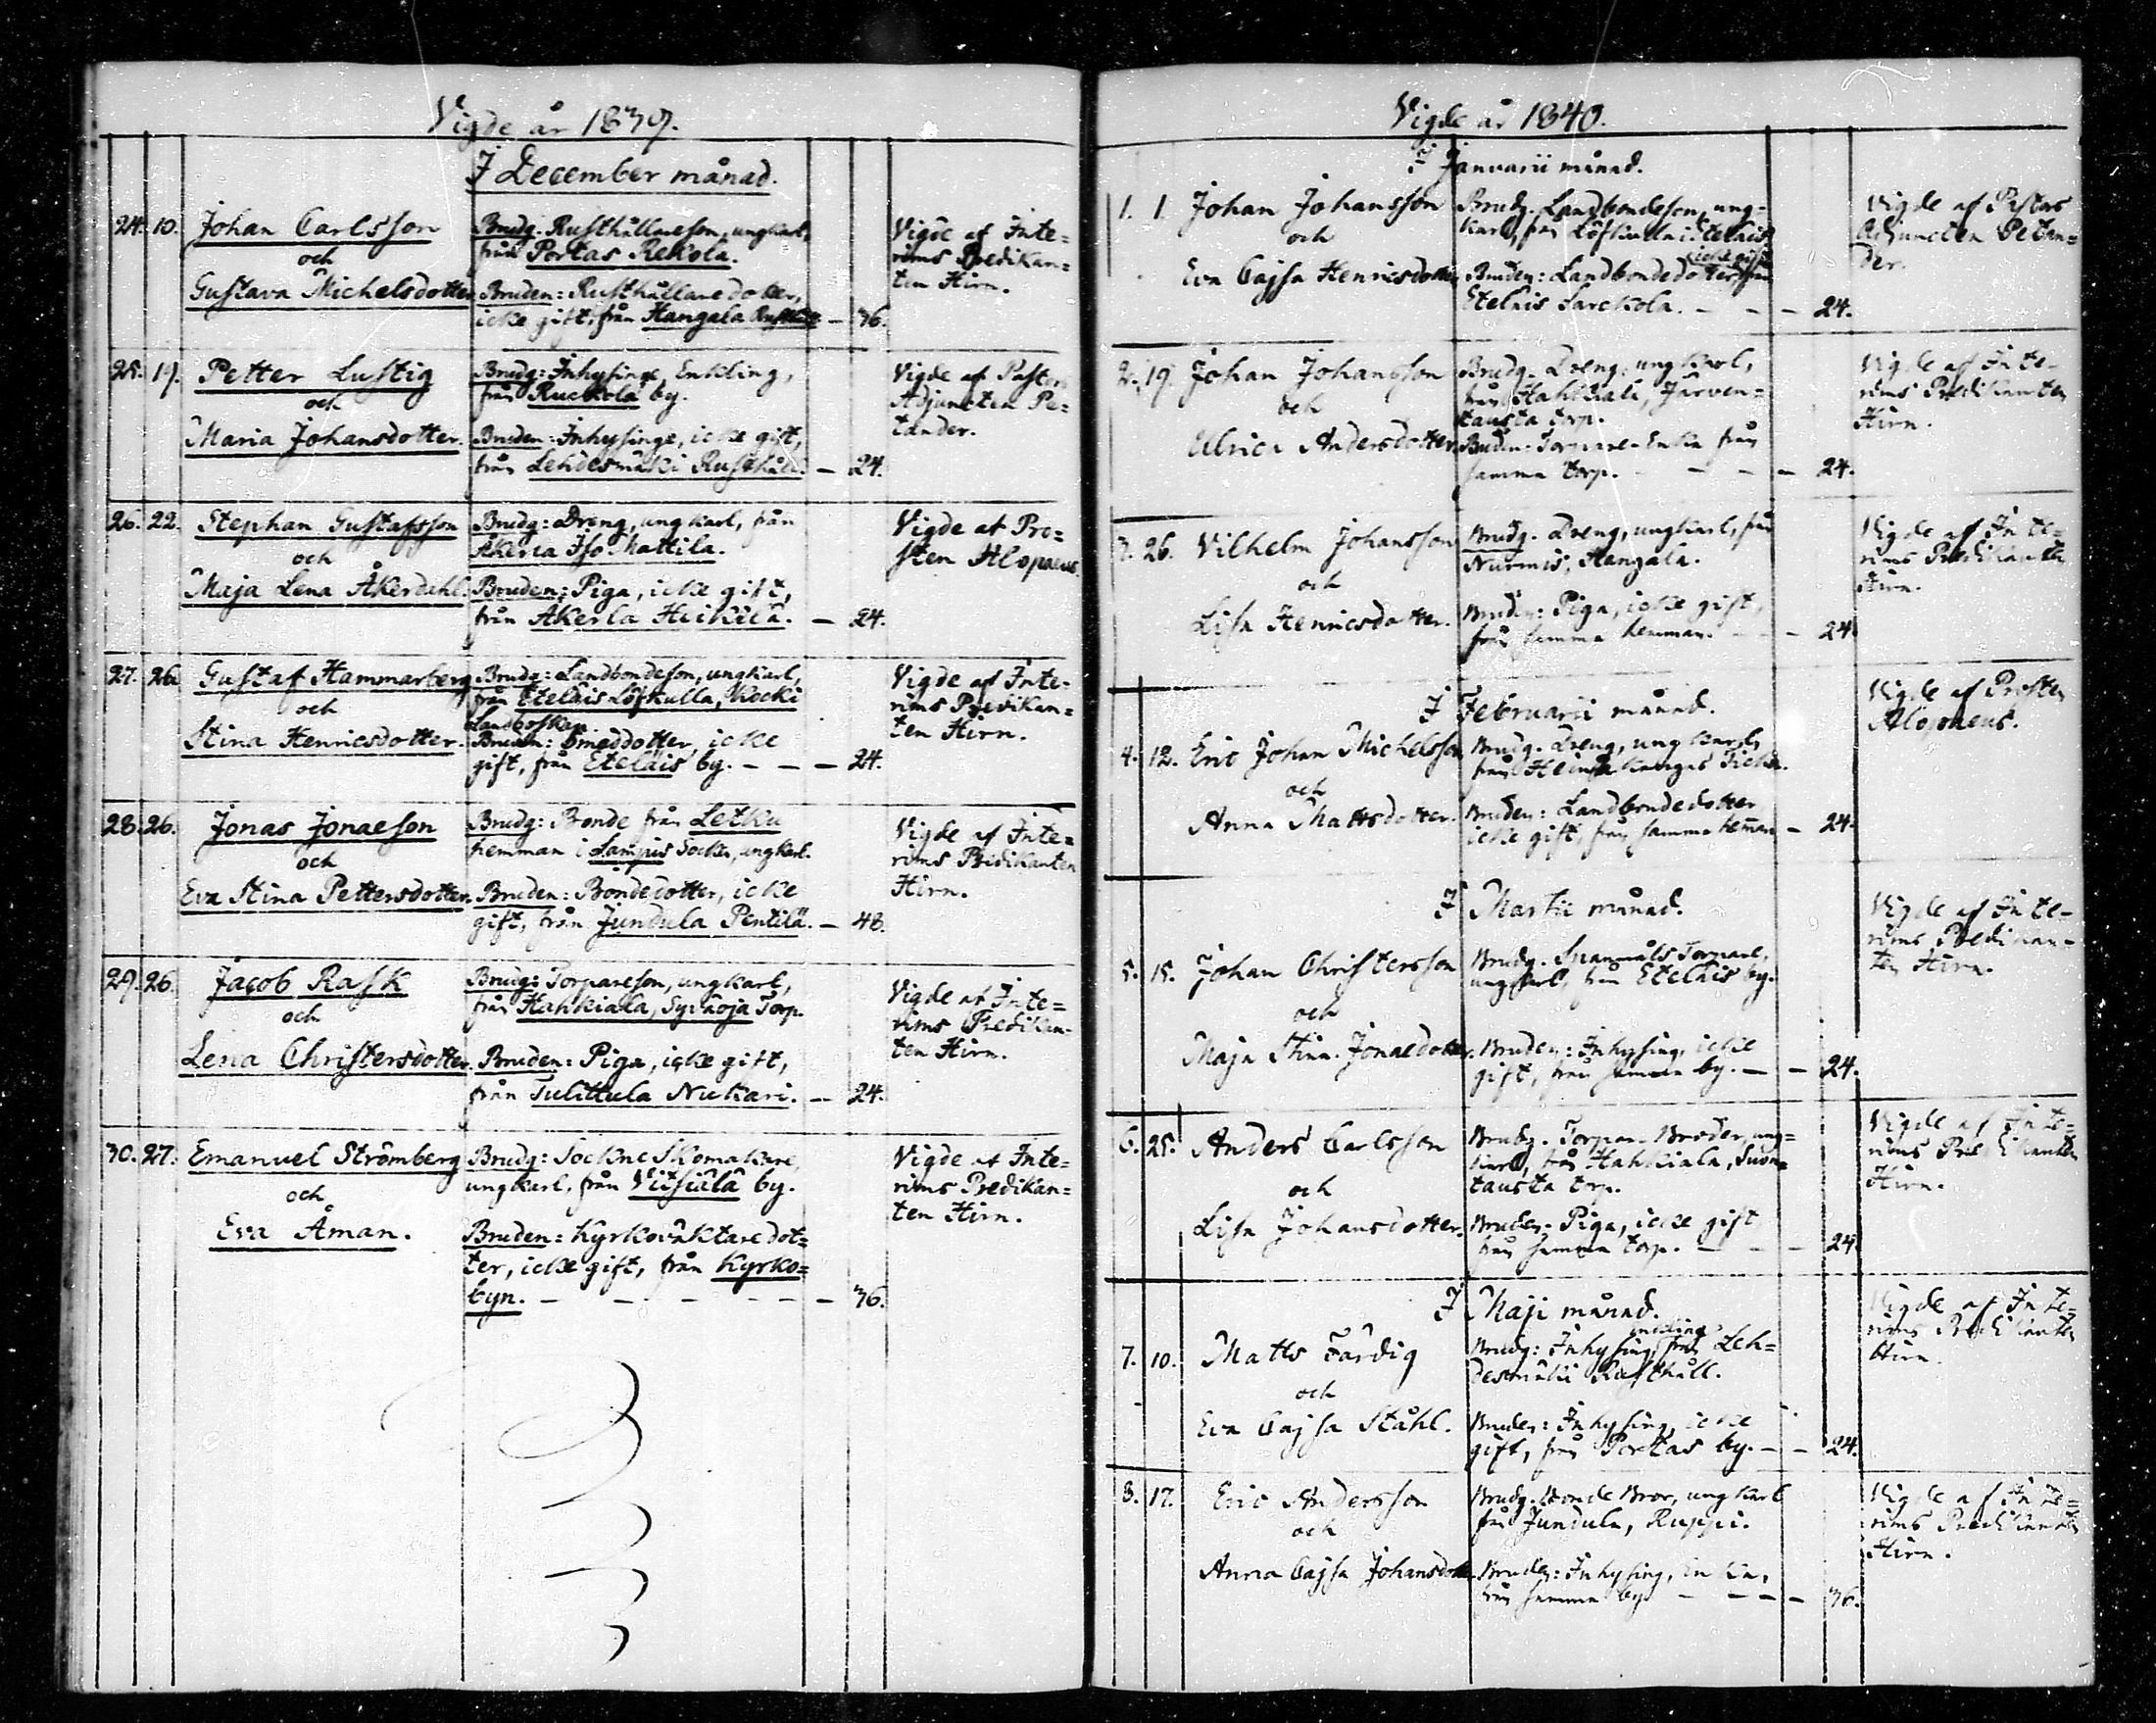 Vigde år 1839.
I December månad.
24. 10. Johan Carlsson
och
Gustava Michelsdotter
Brudg. Rusthållareson, ungkarl,
från Portas Rekola.
Bruden: Rusthållaredotter,
icke gift, från Hangala Rusthåll — 36.
Vigde af Inte=
rims Predikan=
ten Hirn.
25. 19. Petter Lustig
och
Maria Johansdotter.
Brudg: Inhysinge, Enkling,
från Ruckola by.
Bruden: Inhysinge, icke gift,
från Lehdesmäki Rusthåll. — 24.
Vigde af Pastors
Adjuncten Pe=
tander.
26. 22. Stephan Gustafsson
och
Maja Lena Åkerdahl.
Brudg: Dreng, ungkarl, från
Åkerla Iso Mattila.
Bruden: Piga, icke gift,
från Åkerla Heikilä. — 24.
Vigde af Pro=
sten Alopaeus.
27. 26. Gustaf Hammarberg
och
Stina Henricsdotter.
Brudg: Landbondeson, ungkarl,
från Etelais Löfkulla, Kocki
Landboskap.
Bruden: Smeddotter, icke
gift, från Eteläis by. — — — 24.
Vigde af Inte=
rims Predikan=
ten Hirn.
28. 26. Jonas Jonaeson
och
Eva Stina Pettersdotter.
Brudg: Bonde från Letku
hemman i Lampis Socken, ungkarl.
Bruden: Bondedotter, icke
gift, från Jundula Pentilä. — 48.
Vigde af Inte=
rims Predikanten
Hirn.
29. 26. Jacob Rask
och
Lena Christersdotter.
Brudg: Torpareson, ungkarl,
från Hahkiala, Syväoja Torp.
Bruden: Piga, icke gift,
från Tulittula Nukari. — 24.
Vigde af Inte=
rims Predikan-
ten Hirn.
30. 27. Emanuel Strömberg
och
Eva Åman.
Brudg: Sockne Skomakare,
ungkarl, från Vitsiälä by.
Bruden: Kyrkoväktaredot=
ter, icke gift, från Kyrko=
byn. — — — — — — 36.
Vigde af Inte=
rims Predikan=
ten Hirn.
Vigde år 1840.
I Januarii månad.
1. 1. Johan Johansson
och
Eva Cajsa Henricsdotter
Brudg. Landbondeson, ung=
karl, från Etelais
icke gift
Bruden: Landbondedotter från
Etelais Sarckola. — — — 24.
Vigde af Pastors
Adjuncten Petan=
der.
2. 19. Johan Johansson
och
Ulrica Andersdotter.
Brudg. Dreng, ungkarl,
från Hahkiala, Järven=
tausta torp.
Bruden: Torpare-Enka från
samma torp. — — — 24.
Vigde af Inte-
rims Predikanten
Hirn.
3. 26. Vilhelm Johansson
och
Lisa Henricsdotter.
Brudg. Dreng, ungkarl, från
Nurmis, Hangala.
Bruden: Piga, icke gift,
från samma hemman. — — 24
Vigde af Inte=
rims Predikanten
Hirn.
I Februarii månad.
4. 12. Eric Johan Michelsson
och
Anna Mattsdotter.
Brudg. Dreng, ungkarl,
från
Bruden: Landbondedotter
icke gift, från samma heman — 24.
Vigde af Prosten
Alopaeus.
I Martii månad.
5. 15. Johan Christersson
och
Maja Stina Jonaedotter.
Brudg. Spanmåls Torpare,
ungkarl, från Etelais by.
Bruden: Inhysing, icke
gift, från samma by. — — 24.
Vigde af Inte-
rims Predikan-
ten Hirn.
6. 25. Anders Carlsson
och
Lisa Johansdotter.
Brudg. Torpare-Broder, ung=
karl, från Hahkiala, Suon=
tausta torp.
Bruden. Piga, icke gift
från samma torp. — — — 24
Vigde af Inte-
rims Predikanten
Hirn.
I Maji månad.
7. 10. Matts Färdig
och
Eva Cajsa Ståhl.
enkling
Brudg: Inhysing, från Leh=
desmäki Rusthåll.
Bruden: Inhysing, icke
gift, från Portas by. — — 24.
Vigde af Inte=
rims Predikanten
Hirn.
8. 17. Eric Andersson
och
Anna Cajsa Johansdotter
Brudg. Bonde Bror, ungkarl
från Jundula, Ruppi.
Bruden: Inhysing, Enka,
från samma by — — — 36.
Vigde af Inte=
rims Predikanten
Hirn.